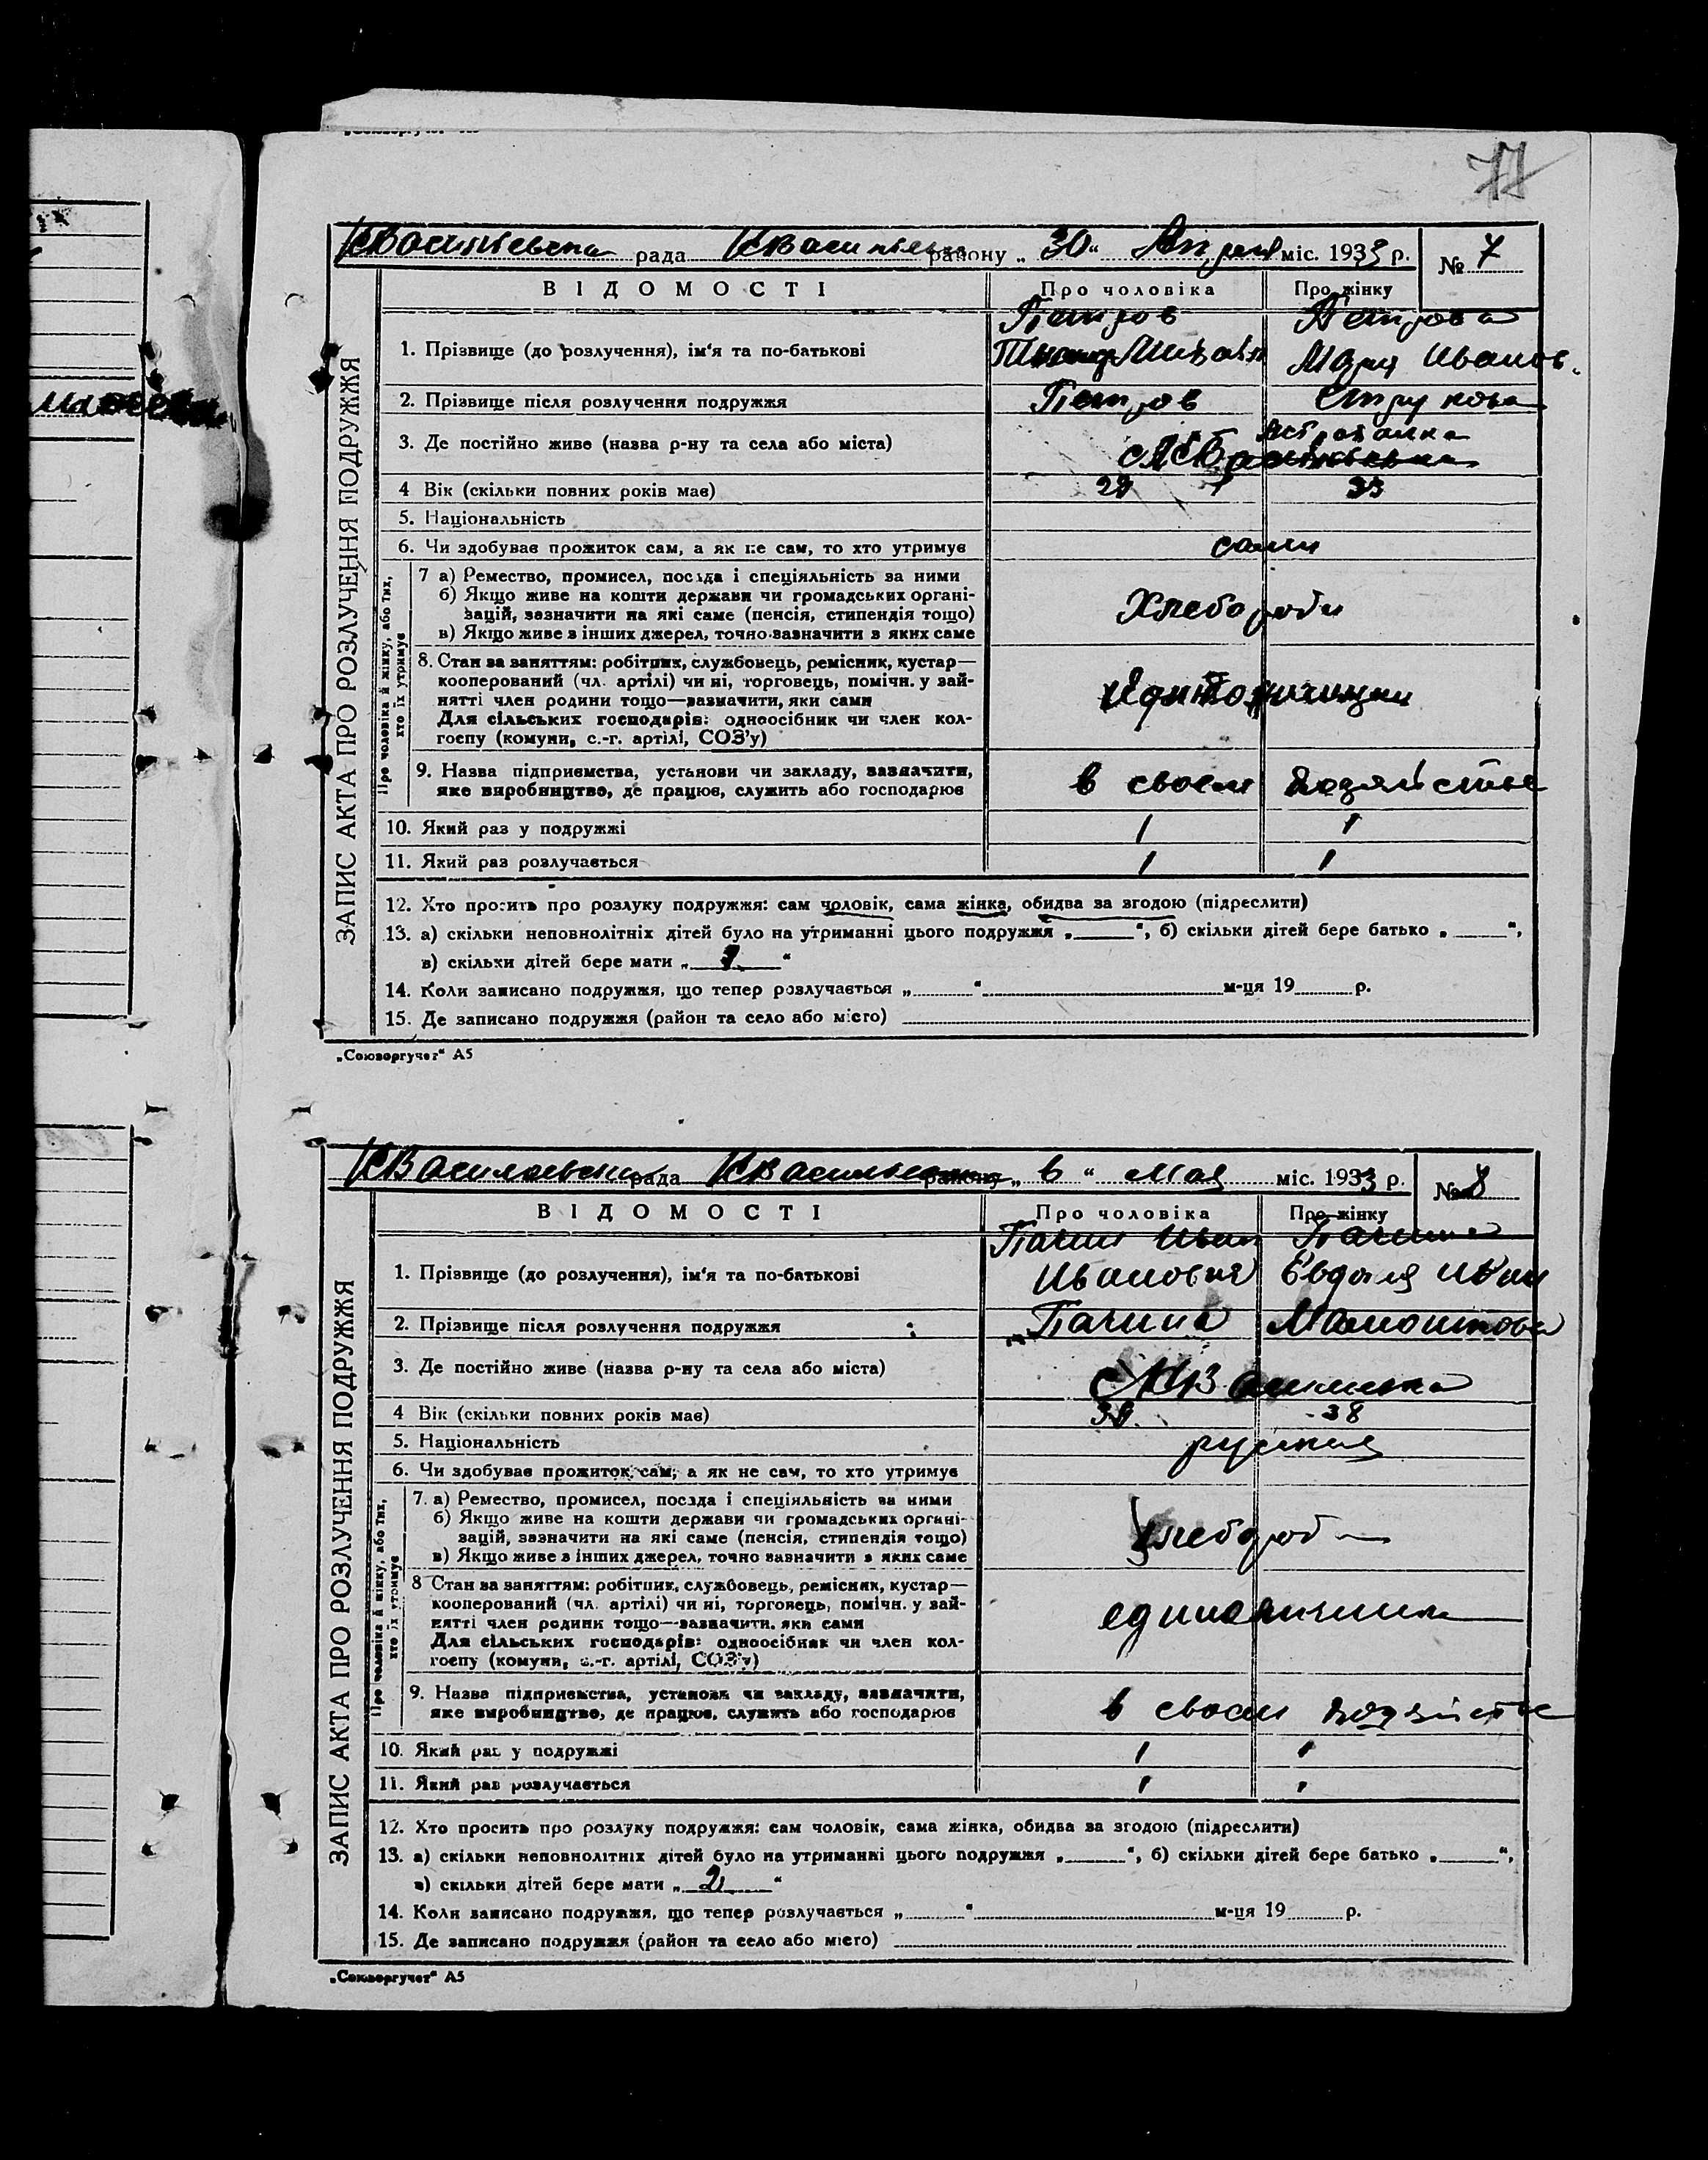 77
рада району „ 30 “ Апреля міс. 1933 р. № 7
ВІДОМОСТІ Про чоловіка Про жінку
Петров Петрова
1. Прізвище (до розлучення), ім'я та по-батькові Мария Иванов.
2. Прізвище після розлучення подружжя Петров Струкова
3. Де постійно живе (назва р-ну та села або міста)
4 Вік (скільки повних років має) 29 33
5. Національність
6. Чи здобував прожиток сам, а як не сам, то хто утримує сами
7 а) Ремество, промисел, посада і спеціяльність за ними
б) Якщо живе на кошти держави чи громадських органі-
зацій, зазначити на які саме (пенсія, стипендія тощо) Хлебороби
в) Якщо живе з інших джерел, точно зазначити з яких саме
8. Стан за заняттям: робітник, службовець, ремісник, кустар—
кооперований (чл. артілі) чи ні, торговець, помічн. у зай-
нятті член родини тощо—зазначити, яки сами
Для сільських господарів: одноосібник чи член кол-
госпу (комуни, с.-г. артілі, СОЗ'у)
9. Назва підприємства, установи чи закладу, зазначити,
яке виробництво, де працює, служить або господарює в своем хозяйстве
10. Який раз у подружжі 1 1
11. Який раз розлучається 1 1
12. Хто просить про розлуку подружжя: сам чоловік, сама жінка, обидва за згодою (підреслити)
13. а) скільки неповнолітніх дітей було на утриманні цього подружжя „ “, б) скільки дітей бере батько „ “,
в) скільки дітей бере мати „ “
14. Коли записано подружжя, що тепер розлучається „ “ м-ця 19 р.
15. Де записано подружжя (район та село або місто)
Про чоловіка й жінку, або тих,
хто їх утримує
ЗАПИС АКТА ПРО РОЗЛУЧЕННЯ ПОДРУЖЖЯ
„Союзоргучет“ А5
рада району „ 6 “ мая міс. 1933 р. № 8
ВІДОМОСТІ Про чоловіка Про жінку
Иван
1. Прізвище (до розлучення), ім'я та по-батькові Иванович Иван
2. Прізвище після розлучення подружжя
3. Де постійно живе (назва р-ну та села або міста)
4 Вік (скільки повних років має) 38
5. Національність русския
6. Чи здобував прожиток сам, а як не сам, то хто утримує
7. а) Ремество, промисел, посада і спеціяльність за ними
б) Якщо живе на кошти держави чи громадських органі-
зацій, зазначити на які саме (пенсія, стипендія тощо) хлебороби
в) Якщо живе з інших джерел, точно зазначити з яких саме
8 Стан за заняттям: робітник, службовець, ремісник, кустар—
кооперований (чл. артілі) чи ні, торговець, помічн. у зай-
нятті член родини тощо—зазначити, яки сами
Для сільських господарів: одноосібник чи член кол-
госпу (комуни, с.-г. артілі, СОЗ'у)
9. Назва підприємства, установи чи закладу, зазначити,
яке виробництво, де працює, служить або господарює в своем хозяйстве
10. Який раз у подружжі 1 1
11. Який раз розлучається 1 1
12. Хто просить про розлуку подружжя: сам чоловік, сама жінка, обидва за згодою (підреслити)
13. а) скільки неповнолітніх дітей було на утриманні цього подружжя „ “, б) скільки дітей бере батько „ “,
в) скільки дітей бере мати „ 2 “
14. Коли записано подружжя, що тепер розлучається „ “ м-ця 19 р.
15. Де записано подружжя (район та село або місто)
Про чоловіка й жінку, або тих,
хто їх утримує
ЗАПИС АКТА ПРО РОЗЛУЧЕННЯ ПОДРУЖЖЯ
„Союзоргучет“ А5